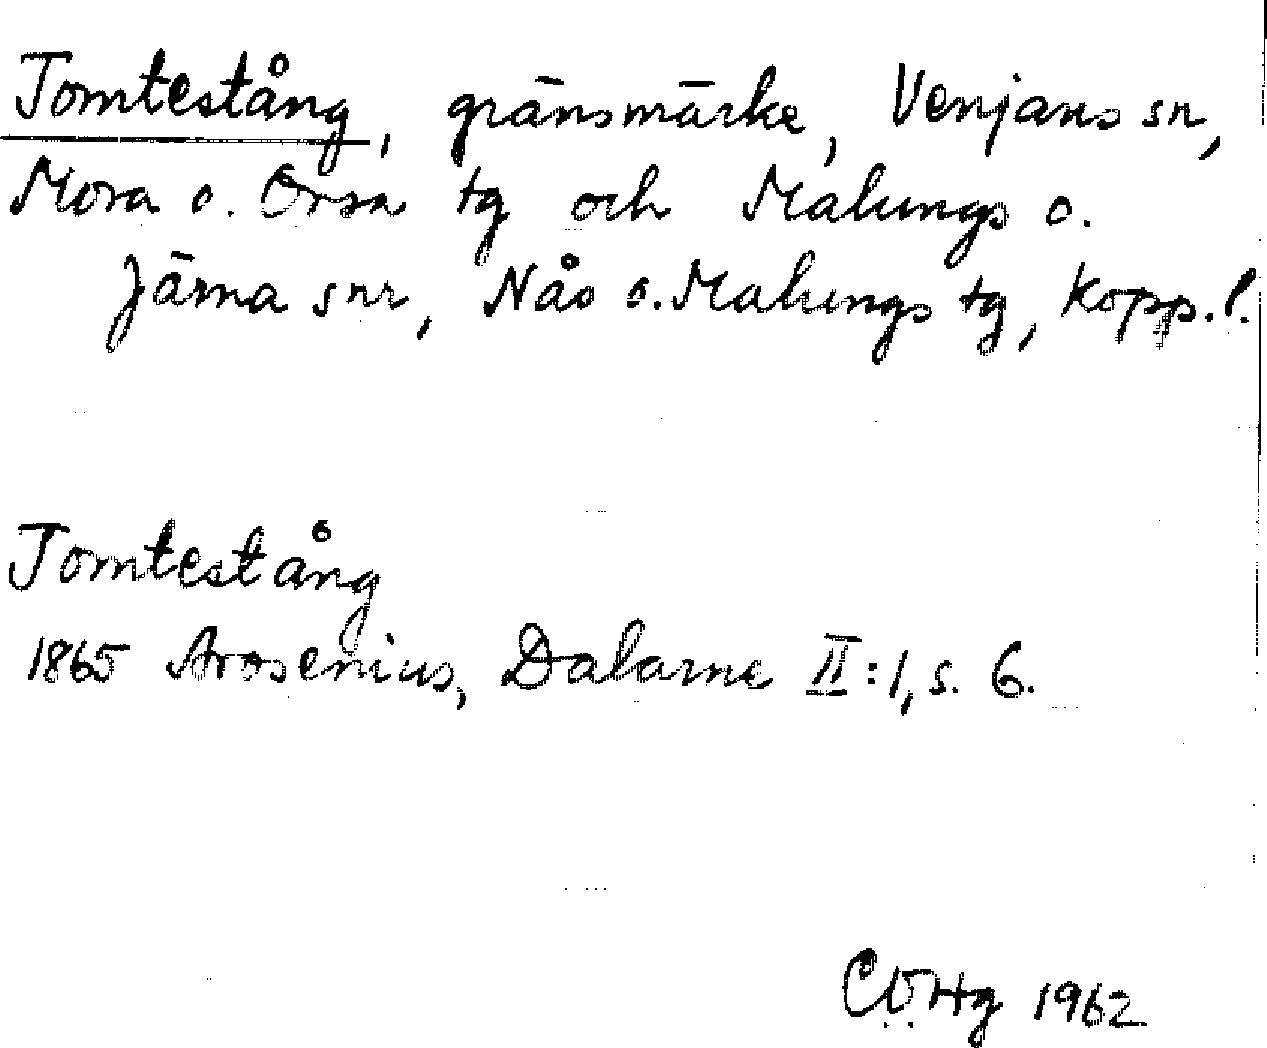 Tomtestång, gränsmärke, Venjans sn,
Mora o. Orsa tg och Malungs o.
Järna snr, Nås o. Malungs tg, Kopp. l.
Tomtestång
1865 Arosenius, Dalarne II:1, s. 6.
1962